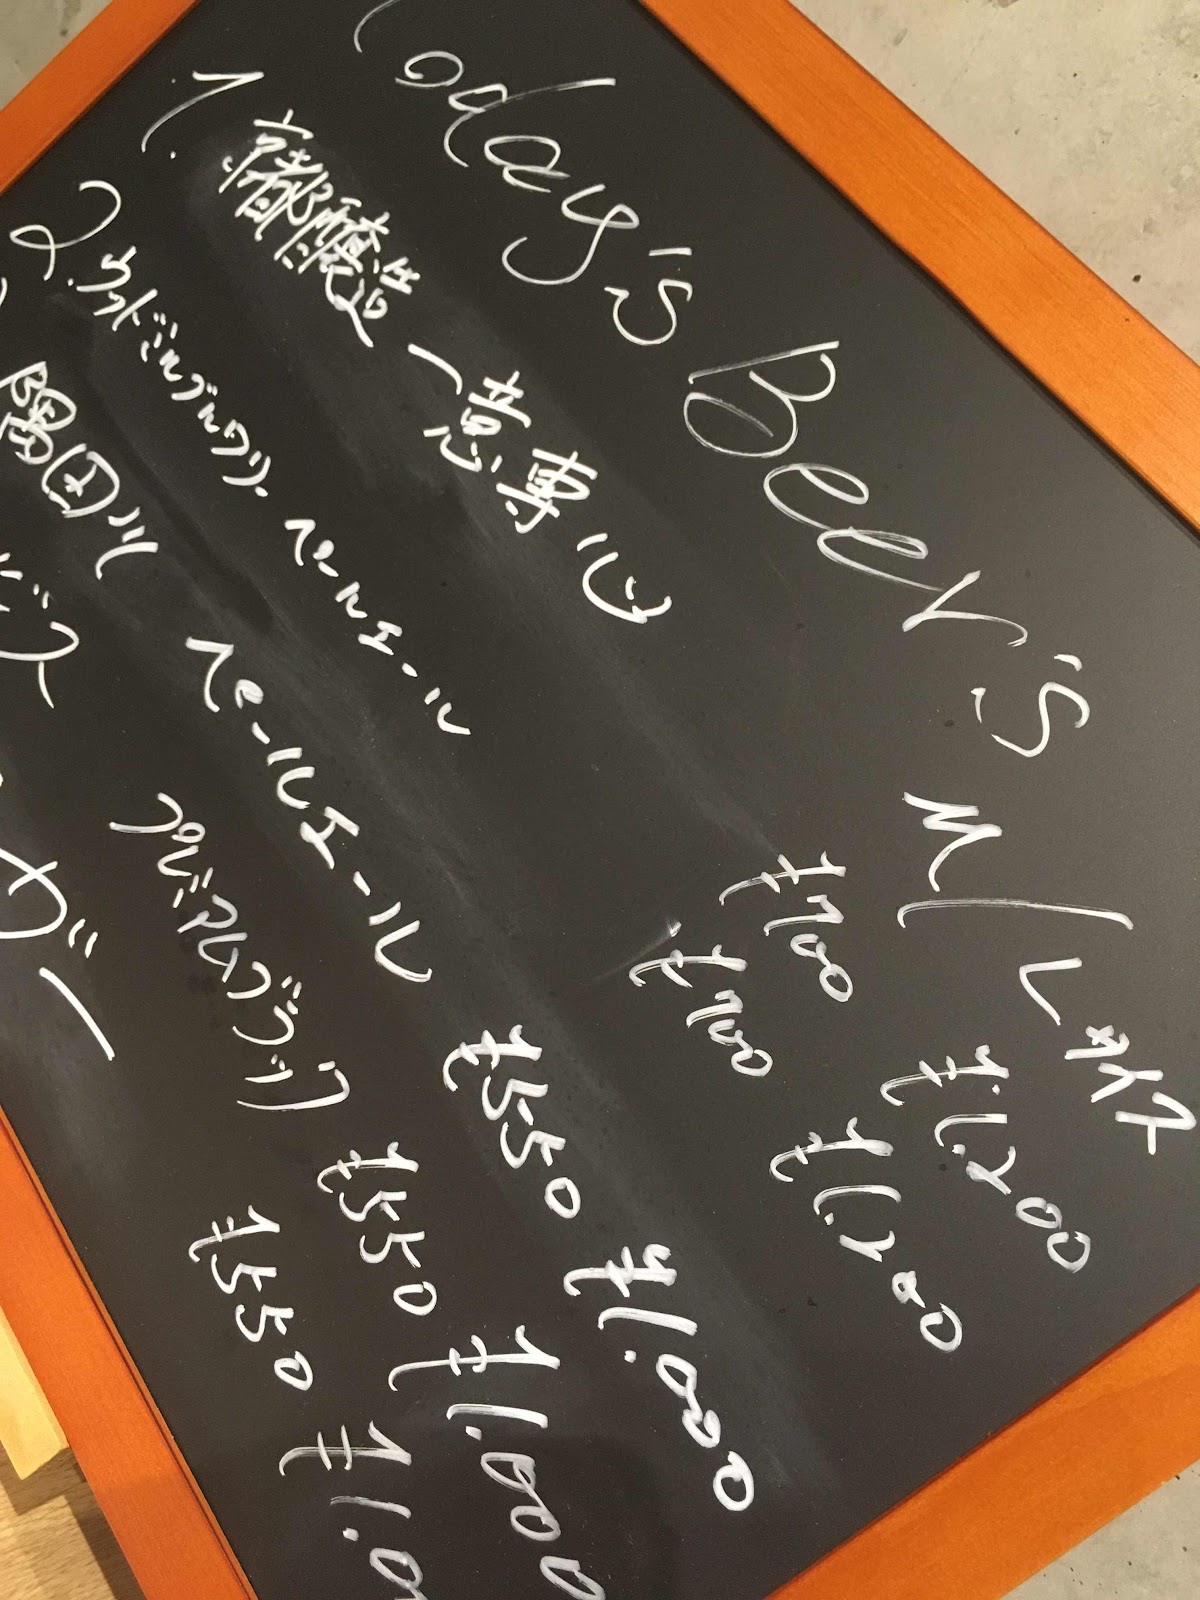 Today's Beer's M/Lサイズ
1. 京都醸造 一意専心 ¥700 ¥1.200
2. ウッドミルブルワリー ペールエール ¥700 ¥1.200
隅田川 ペールエール ¥550 ¥1.000
ビス プレミアムブラック ¥550 ¥1.000
ガー ¥550 ¥1.0